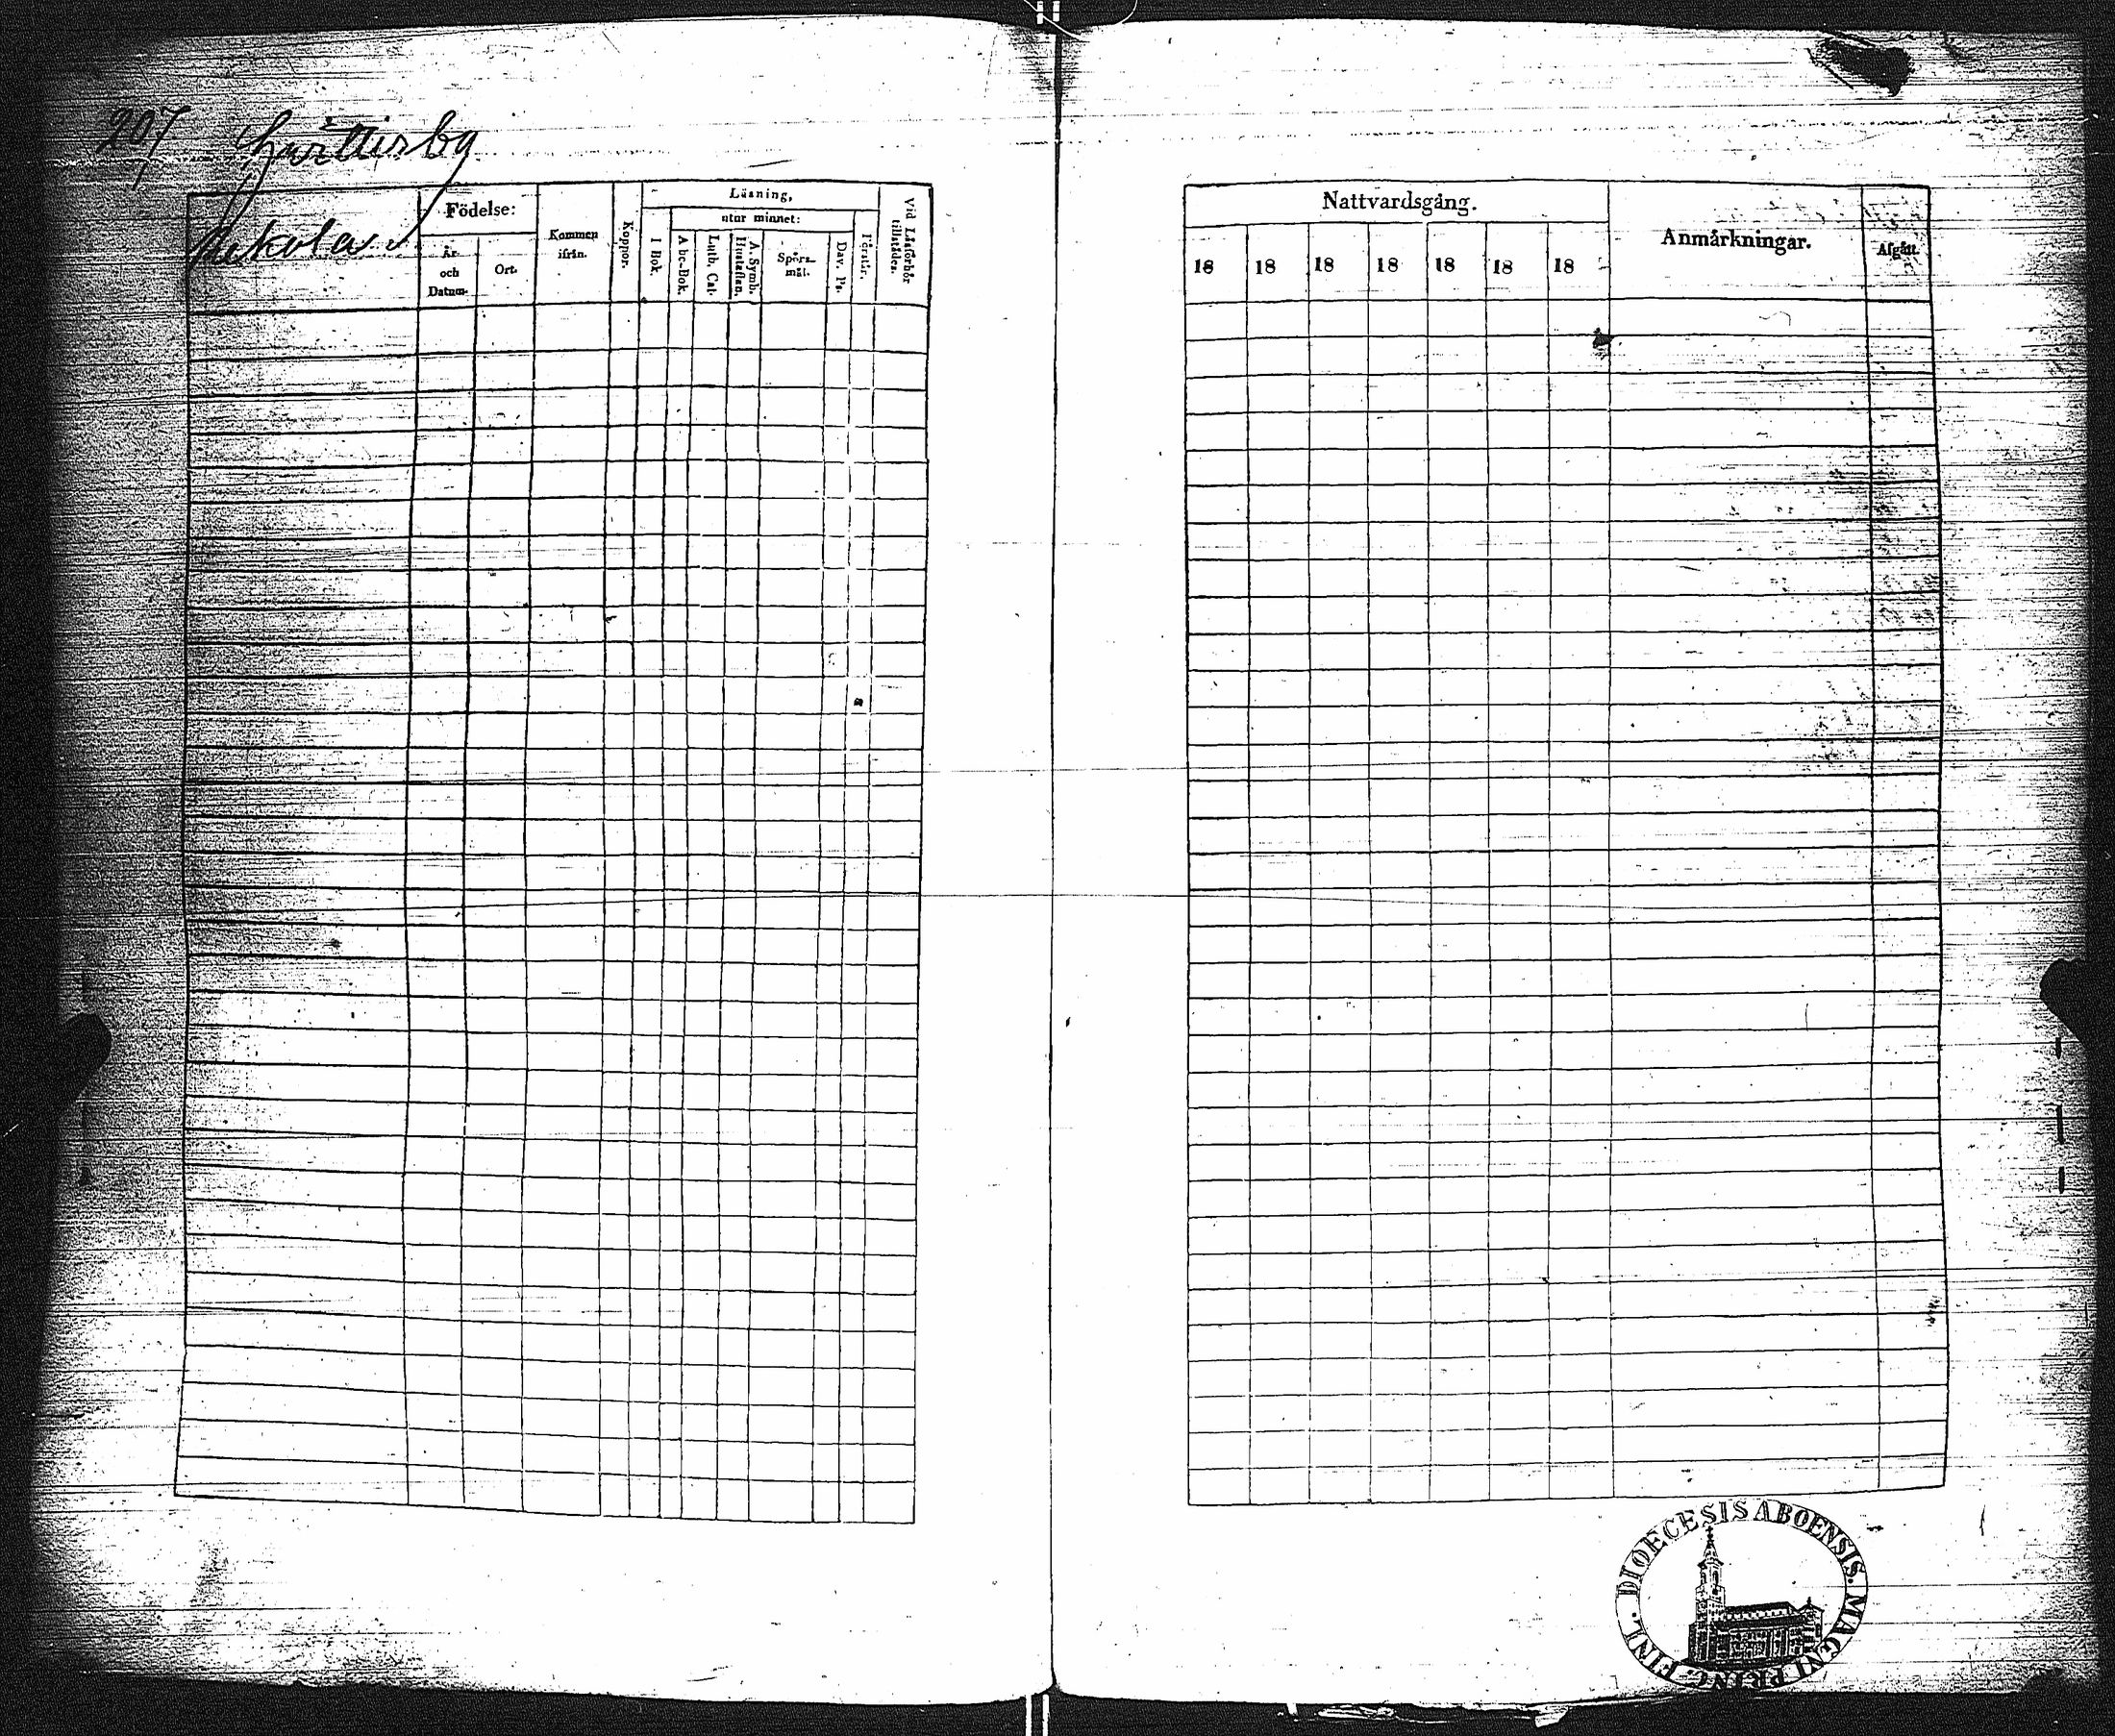 207
Pekola
Födelse:
År och Datum.
Ort.
Kommen ifrån.
Koppor.
Läsning,
I Bok.
utur minnet:
A bc-Bok.
Luth. Cat.
A. Symb. Hustaflan.
Spörs-mål.
Dav. Ps.
Förstår.
Vid Läsförhör tillstädes.
Nattvardsgång.
18 18 18 18 18 18 18
Anmärkningar.
Afgått.
DIOECESIS ABOENSIS. MAGNI PRINC. FINL.